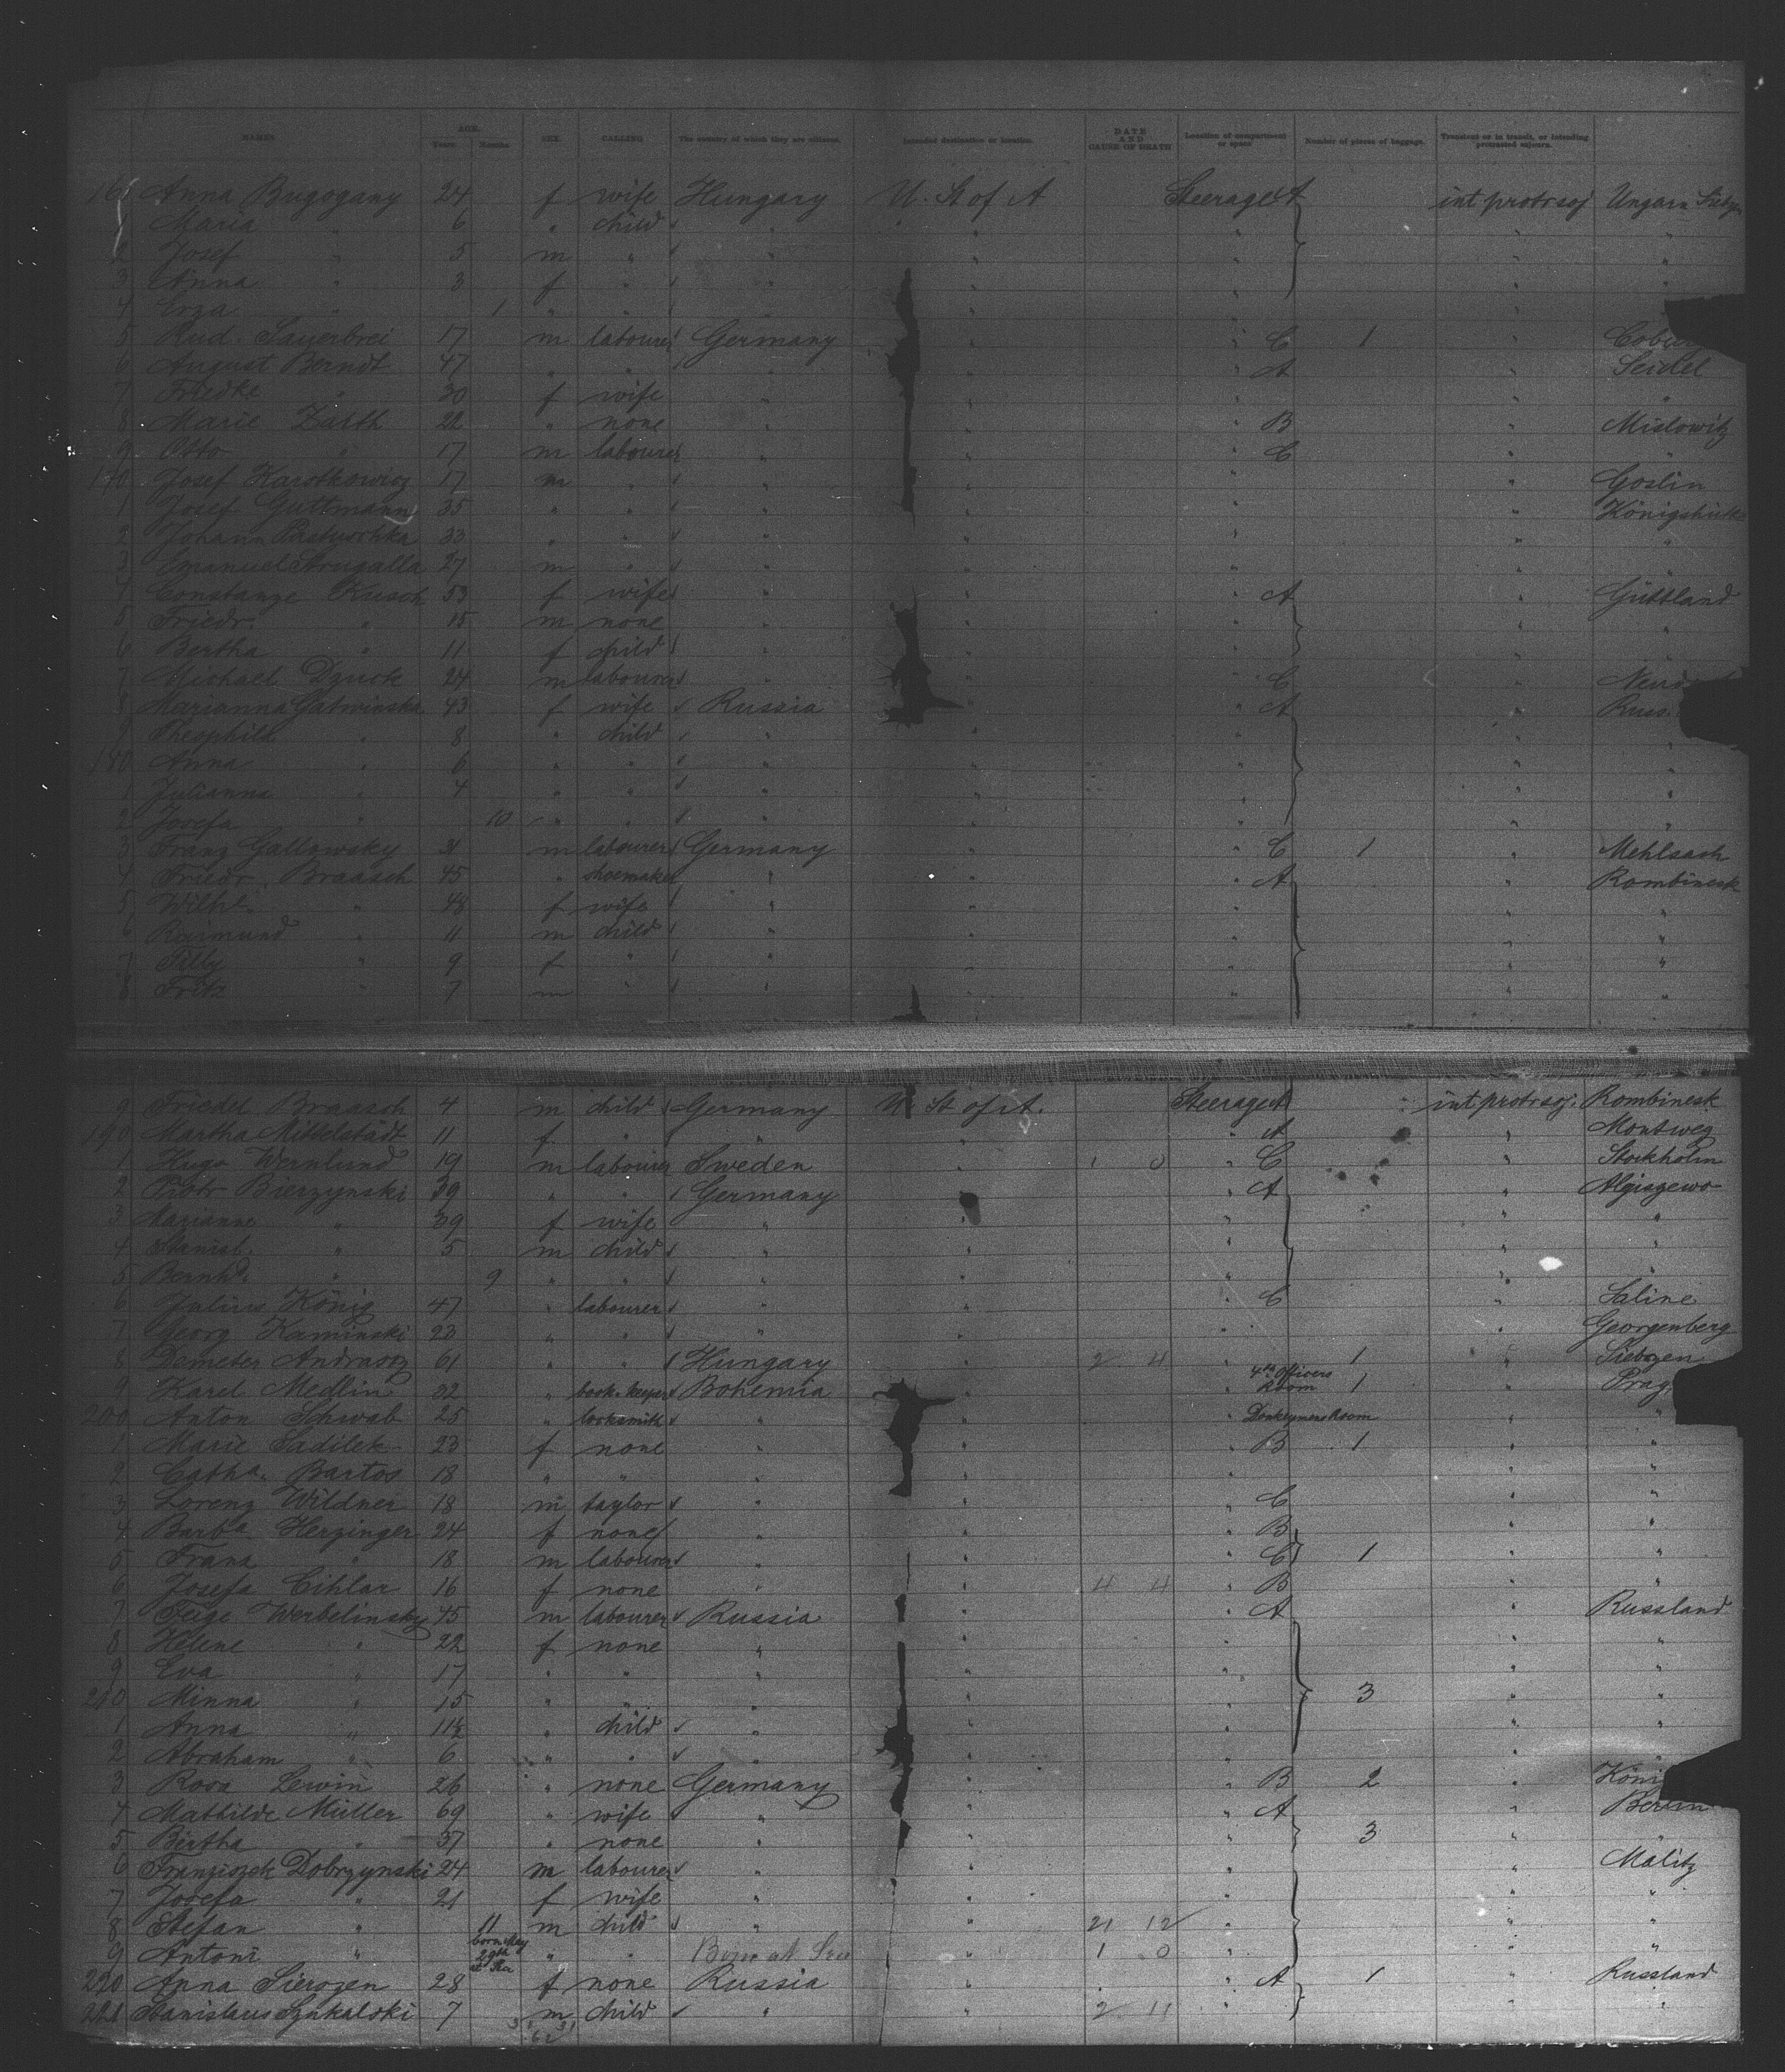 NAMES AGE. Years. Months. SEX. CALLING The country of which they are citizens. Intended destination or location. DATE AND CAUSE OF DEATH Location of compartment or space Number of pieces of baggage. Transient or in transit, or intending protracted sojourn.
Anna Bugogany 24 f wife Hungary U. St of A Steerage A int protr soj Ungarn
1 Maria " 6 " child " " " "
2 Josef " 5 m " " " " " "
3 Anna " 3 f " " " " " "
4 Erza " 1 " " " " " "
5 Rud. Sauerbrei 17 m labourer Germany " " C 1 "
6 August Berndt 47 " " " " " A " Seidel
7 Friedke " 30 f wife " " " " "
8 Marie Barth 22 " none " " " B " Mislowitz
9 Otto " 17 m labourer " " " C " "
170 Josef Karotkowicz 17 m " " " " " Goslin
1 Josef Guttmann 35 " " " " " "
2 Johann Pastuschka 33 " " " " " " "
3 Emanuel 27 m " " " " " "
4 Constanze Kusch 53 f wife " " " A " Güttland
5 Friedr. " 15 m none " " " " "
6 Bertha " 11 f child " " " " "
7 Michael Dzuck 24 m labourer " " " C "
8 Marianna 43 f wife Russia " " A " Russ
9 Theophile " 8 " child " " " " "
180 Anna " 6 " " " " " " "
1 Julianna " 4 " " " " " " "
2 Josefa " 10 " " " " " " "
3 Franz Gallowsky 31 m labourer Germany " " C 1 " Mehlsach
4 Friedr. Braasch 45 " shoemaker " " " A " Rombinesk
5 Wilhe. " 48 f wife " " " " "
6 Raimund " 11 m child " " " " "
7 Tilly " 9 f " " " " " "
8 Fritz " 7 m " " " " " "
9 Friedel Braasch 4 m child Germany U. St of A. Steerage A int protr soj. Rombinesk
190 Martha Mittelstädt 11 f " " " " A " Montweg
1 Hugo Wernlund 19 m labourer Sweden " 1 0 " C " Stockholm
2 Piotr Bierzynski 39 " " Germany " " A " Algiszewo
3 Marianne " 39 f wife " " " " "
4 Stanisl. " 5 m child " " " " "
5 Bernhd. " 9 " " " " " " "
6 Julius König 47 " labourer " " " C " Saline
7 Georg Kaminski 23 " " " " " " Georgenberg
8 Demeter Andrassy 61 " " Hungary " 2 4 " 1 " Siebzen
9 Karel Medlin 32 " book-keeper Bohemia " 4th Officers Room 1 " Prag
200 Anton Schwab 25 " locksmith " " " Donkeymens Room " "
1 Marie Sadilek 23 f none " " " B 1 " "
2 Catha. Bartos 18 " " " " " " "
3 Lorenz Wildner 18 m taylor " " " C " "
4 Barba. Herzinger 24 f none " " " B " "
5 Franz " 18 m labourer " " " C 1 " "
6 Josefa Cihlar 16 f none " " 4 4 " B " "
7 Feige Werbelinsky 45 m labourer Russia " " A " Russland
8 Helene " 22 f none " " " " "
9 Eva " 17 " " " " " " "
210 Minna " 15 " " " " " 3 " "
1 Anna " 11½ " child " " " " "
2 Abraham " 6 " " " " " " "
3 Rosa Lewin 26 " none Germany " " B 2 " Köni
4 Mathilde Müller 69 " wife " " " A " Berlin
5 Bertha " 37 " none " " " 3 " "
6 Franziszek Dobrzynski 24 m labourer " " " " Malitz
7 Josefa " 21 f wife " " " " "
8 Stefan " 11 m child " " 21 12 " " "
9 Antoni " born May 29th at Sea " " Born at Sea " 1 0 " " "
220 Anna Sierozen 28 f none Russia " " A 1 " Russland
221 Stanislaus Szukalski 7 m child " " 2 11 " " "